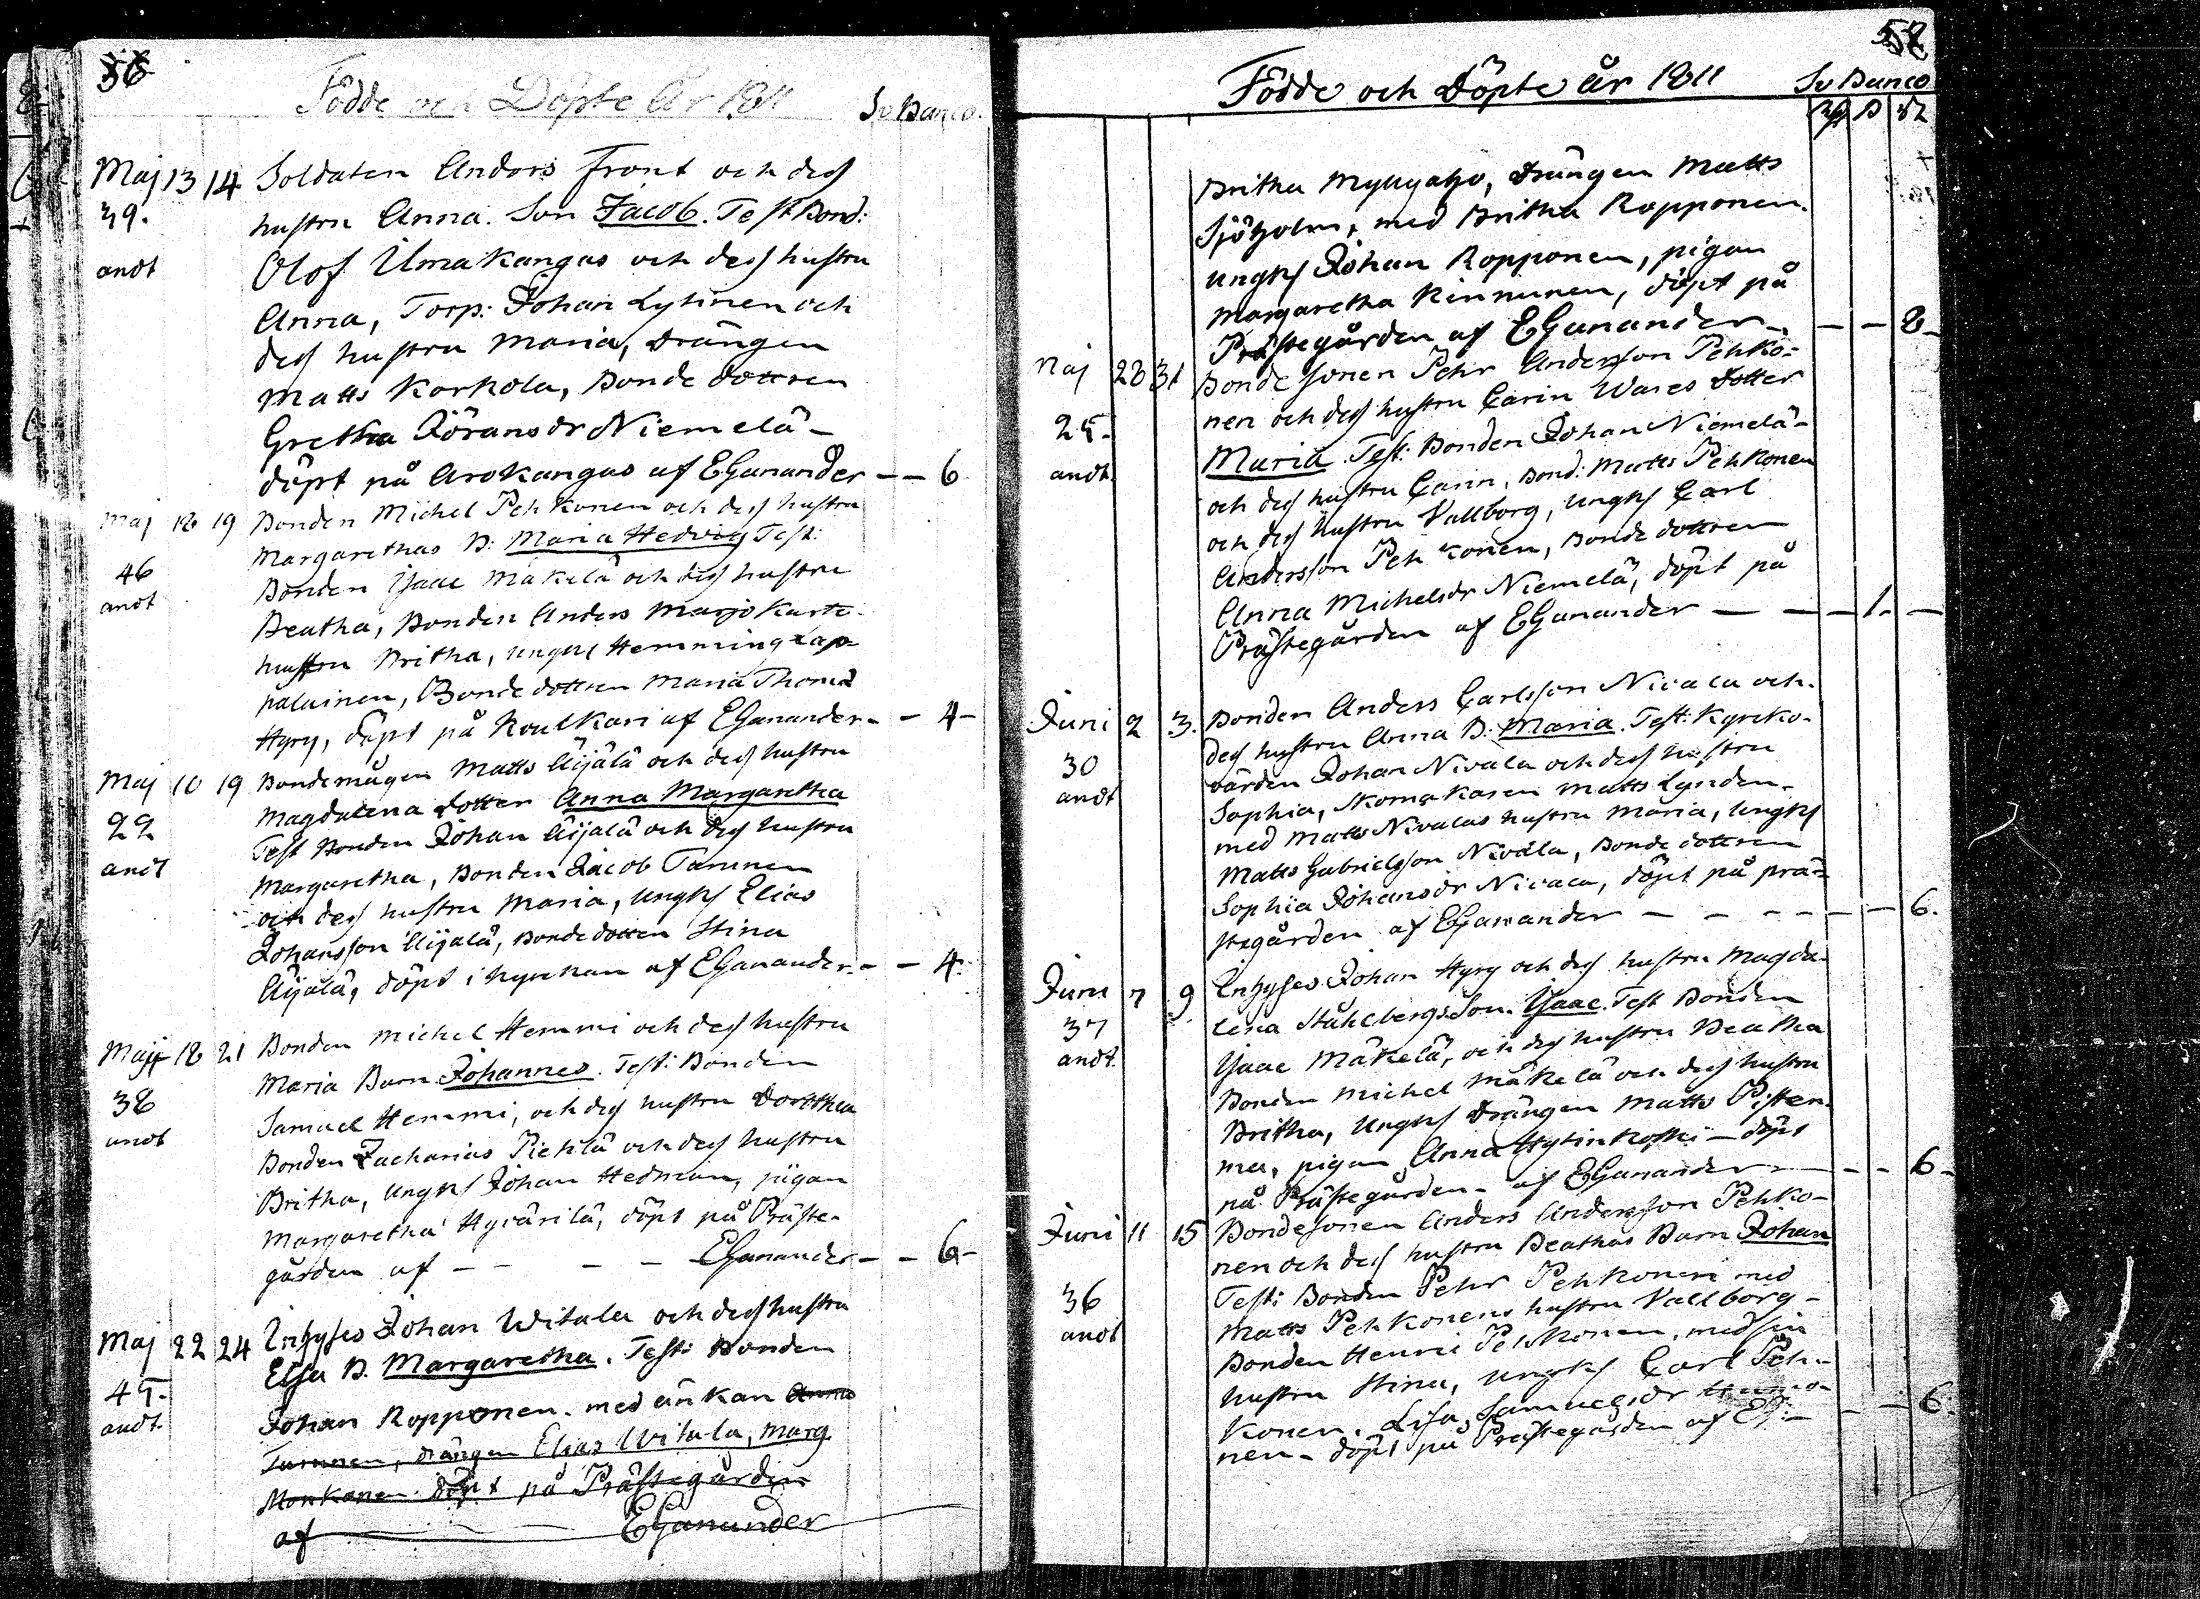 56
Födde och Döpte År 1811 Sv Banco.
Maj 13 14 Soldaten Anders Front och dess
39. hustru Anna. Son Jacob. Test. Bond:
andt Olof Ulmakangas och dess hustru
Anna, Torp: Johan Lytinen och
dess hustru Maria, Drängen
Matts Korkola, Bonde dottren
Gretha Jöransdr Niemelä –
döpt på Arokangas af EGanander – – 6
Maj 18 19 Bonden Michel Pehkonen och dess hustru
Margarethas B: Maria Hedvig Test:
46 Bonden Isaac Mäkelä och dess hustru
andt Beatha, Bonden Anders Marjokarte
hustru Britha, ungks Hemming Lap-
palainen, Bonde dottren Maria Thomæ
Hyry, döpt på Koulkari af EGanander – – 4 –
Maj 18 19 Bondemågen Matts Äijälä och dess hustru
Magdalena Dotter Anna Margaretha
22 Test Bonden Johan Äijälä och dess hustru
andt Margaretha, Bonden Jacob Tammen
och dess hustru Maria, ungks Elias
Johansson Äijälä, Bonde dotten Stina
Äijälä, döpt i kyrckan af EGanander – – 4.
Maj 18 21 Bonden Michel Hemmi och dess hustru
Maria Barn Johannes. Test: Bonden
38 Samuel Hemmi, och dess hustru Dorthea
andt Bonden Zacharias Piehlä och dess hustru
Britha, ungks Johan Hedman, pigan
Margaretha Hyvärilä, döpt på Präste-
gården af – – – – EGanander – – 6 –
Maj 22 24 Inhyses Johan Witala och dess hustru
Elsa B. Margaretha. Test: Bonden
45. Johan Ropponen. med änkan Anna
andt. Tammen, drängen Elias Witala, Marg
Monkonen. döpt på Prästegården
af EGanander
Födde och Döpte år 1811 Sv Banco
Britha, Drängen Matts
Sjöholm, med Britha Ropponen.
ungks Johan Ropponen, pigan
Margaretha Kinnunen, döpt på
Prästegården af EGanander – – – 8 –
Maj 28 31 Bonde sonen Pehr Andersson Pehko-
nen och dess hustru Carin Wares Dotter
25. Maria. Test: Bonden Johan Niemelä –
andt. och dess hustru Carin, Bond: Matts Pehkonen
och dess hustru Vallborg, ungks Carl
Andersson Pehkonen, Bonde dottren
Anna Michelsdr Niemelä, döpt på
Prästegården af EGanander – – – 1. –
Juni 2 3. Bonden Anders Carlsson Nivala och
dess hustru Anna B: Maria. Test: Kyrko-
30 värden Johan Nivala och dess hustru
andt Sophia, Skomakaren Matts Lynden
med Matts Nivalas hustru Maria, ungks
Matts Gabrielsson Nivala, Bonde dottren
Sophia Johansdr Nivala, döpt på prä-
stegården af EGanander – – – – – – 6.
Juni 7 9 Inhyses Johan Hyry och dess hustru Magda-
lena Ståhlbergs Son. Isaac. Test Bonden
37 Isaac Mäkelä, och dess hustru Beatha
andt. Bonden Michel Mäkelä och dess hustru
Britha, ungks Drängen Matts Pisten-
ma, pigan Anna Hytinkoski – döpt
på Prästegården – af EGanander – – – 6 –
Juni 11 15 Bondesonen Anders Andersson Pehko-
nen och dess hustru Beathas Barn Johan
36 Test: Bonden Pehr Pehkonen med
andt Matts Pehkonens hustru Vallborg –
Bonden Henric Pehkonen, med sin
hustru Stina, ungks Carl Peh-
konen. Lisa Samuelsdr
nen – döpt på Prästegården af EG: – – – 6.